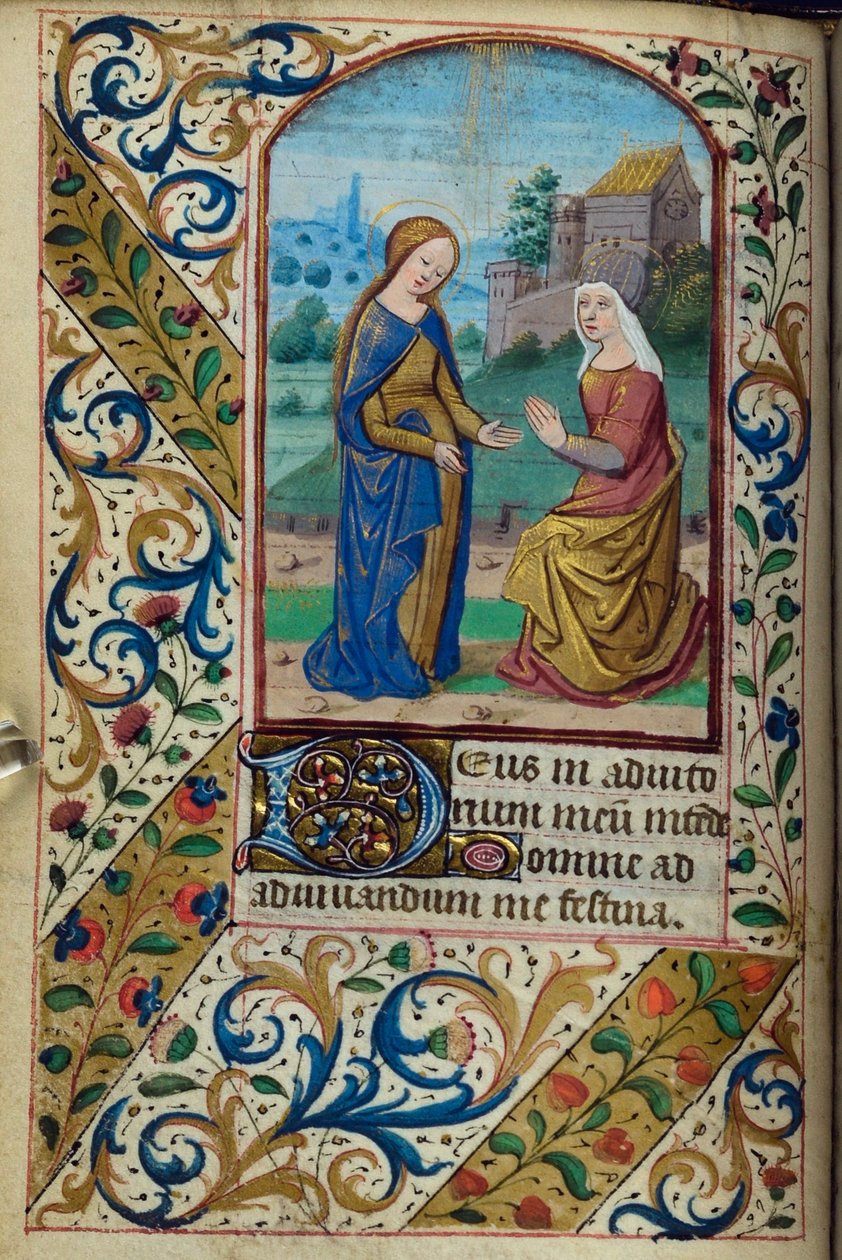 Deus in adiuto
rium meū intēde
Domine ad
adiuuandum me festina.